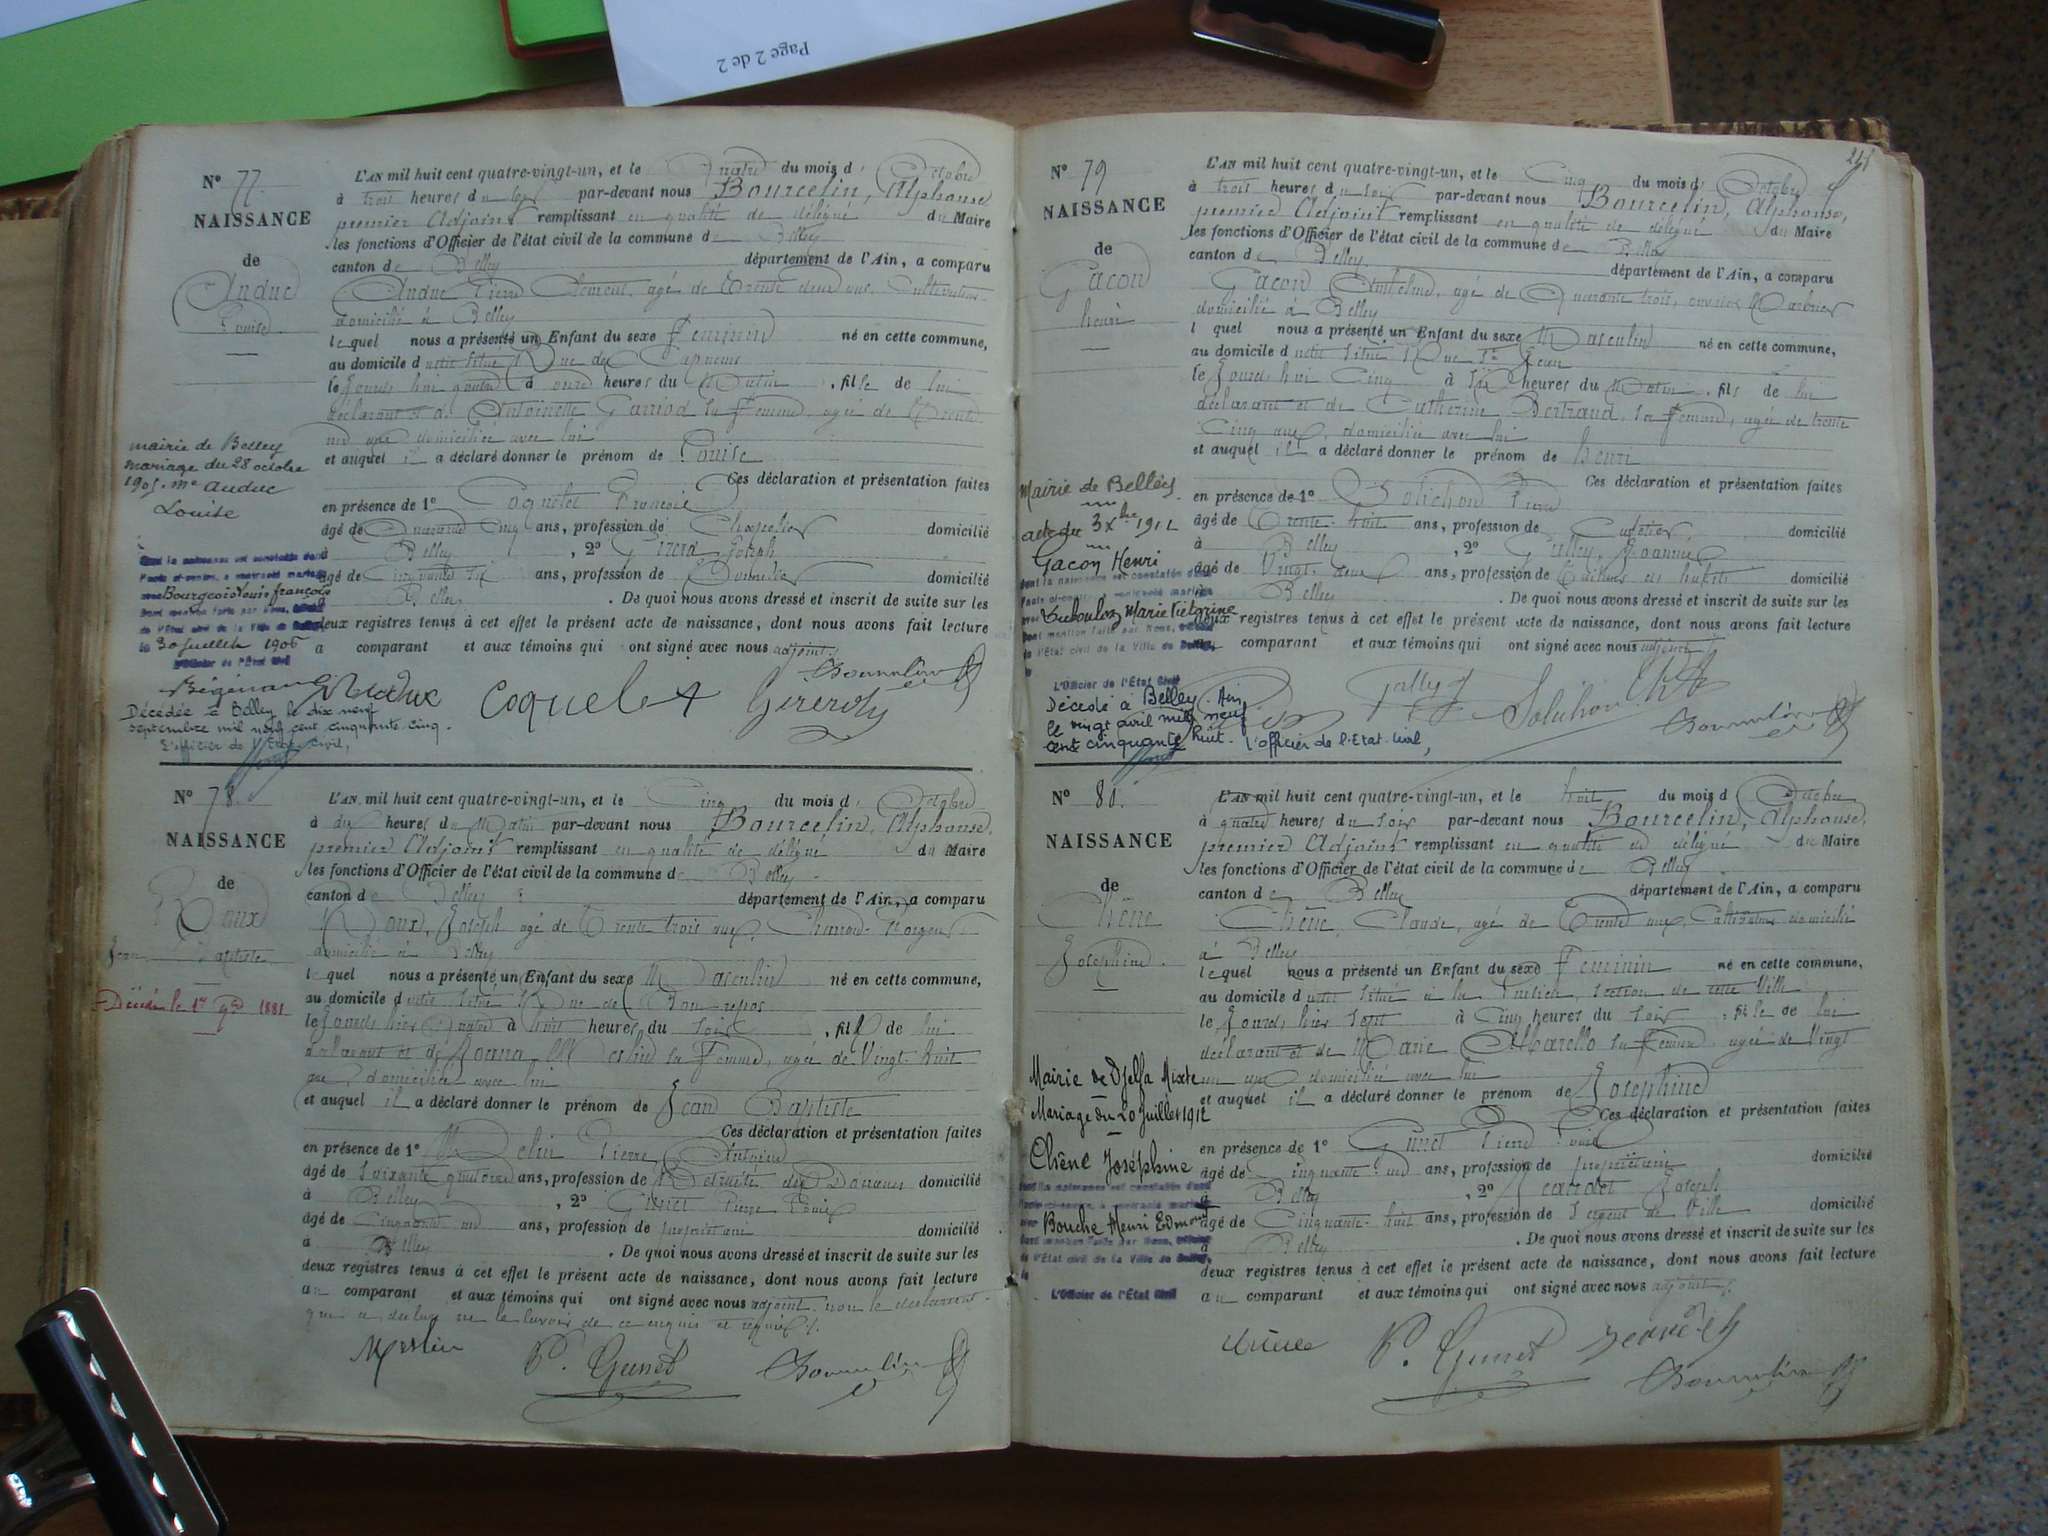 Page 2 de 2
N° 77.
NAISSANCE
de
Auduc
Louise
L'AN mil huit cent quatre-vingt-un, et le Quatre du mois d'Octobre
à trois heures du soir par-devant nous Bourcelin, Alphonse
premier Adjoint remplissant en qualité de délégué du Maire
les fonctions d'Officier de l'état civil de la commune de Belley
canton de Belley département de l'Ain, a comparu
Auduc Pierre Clément, agé de Trente deux ans, Cultivateur
domicilié à Belley
lequel nous a présenté un Enfant du sexe Féminin né en cette commune,
au domicile d situé Rue des Capucins
le Jourd'hui quatre à onze heures du Matin, fille de lui
déclarant et de Antoinette Garriod sa Femme, agée de Trente
ans domiciliée avec lui
et auquel il a déclaré donner le prénom de Louise
Ces déclaration et présentation faites
en présence de 1° Coquelet François
âgé de Quarante Cinq ans, profession de Chapelier domicilié
à Belley, 2° Joseph
âgé de Cinquante six ans, profession de domicilié
à Belley. De quoi nous avons dressé et inscrit de suite sur les
deux registres tenus à cet effet le présent acte de naissance, dont nous avons fait lecture
a comparant et aux témoins qui ont signé avec nous adjoint.
mairie de Belley
mariage du 28 octobre
1905. Me Auduc
Louise
dont la naissance est constatée dans
l'acte ci-contre, a contracté mariage
avec Bourgeois Louis françois
dont mention faite par Nous, Officier
de l'État civil de la Ville de Belley,
le 30 juillet 1906
L'Officier de l'État Civil
Auduc Coquelet
Décédée à Belley le dix neuf
septembre mil neuf cent cinquante cinq.
L'officier de l'Etat Civil,
N° 78.
NAISSANCE
de
Roux
Jean Baptiste
Décédé le 1er 9bre 1881
L'AN mil huit cent quatre-vingt-un, et le Cinq du mois d'Octobre
à dix heures du Matin par-devant nous Bourcelin, Alphonse,
premier Adjoint remplissant en qualité de délégué du Maire
les fonctions d'Officier de l'état civil de la commune de Belley
canton de Belley département de l'Ain, a comparu
Roux, Joseph agé de Trente trois ans,
domicilié à Belley
lequel nous a présenté un Enfant du sexe Masculin né en cette commune,
au domicile d situé Rue de Bon repos
le Jourd'hier Quatre à huit heures du soir, fils de lui
déclarant et de sa Femme, agée de Vingt huit
ans domiciliée avec lui
et auquel il a déclaré donner le prénom de Jean Baptiste
Ces déclaration et présentation faites
en présence de 1° Pierre, Antoine
âgé de Soixante quatorze ans, profession de Retraité des Douanes domicilié
à Belley, 2° Gunet Pierre Louis
âgé de Cinquante un ans, profession de propriétaire domicilié
à Belley. De quoi nous avons dressé et inscrit de suite sur les
deux registres tenus à cet effet le présent acte de naissance, dont nous avons fait lecture
au comparant et aux témoins qui ont signé avec nous adjoint non le déclarant
qui a déclaré ne le savoir de ce enquis et requis.
P. Gunet
N° 79
NAISSANCE
de
Gacon
henri
L'AN mil huit cent quatre-vingt-un, et le Cinq du mois d'Octobre
à trois heures du soir par-devant nous Bourcelin, Alphonse,
premier Adjoint remplissant en qualité de délégué du Maire
les fonctions d'Officier de l'état civil de la commune de Belley
canton de Belley département de l'Ain, a comparu
Gacon Anthelme, agé de Quarante trois, ouvrier Marbrier
domicilié à Belley
lequel nous a présenté un Enfant du sexe Masculin né en cette commune,
au domicile d situé Rue St Jean
le Jourd'hui Cinq à six heures du Matin, fils de lui
déclarant et de Catherine Bertrand sa Femme, agée de trente
Cinq ans, domiciliée avec lui
et auquel il a déclaré donner le prénom de henri
Ces déclaration et présentation faites
en présence de 1° Solichon Pierre
âgé de Trente huit ans, profession de domicilié
à Belley, 2° Joannès
âgé de Vingt deux ans, profession de Tailleur d'habits domicilié
à Belley. De quoi nous avons dressé et inscrit de suite sur les
deux registres tenus à cet effet le présent acte de naissance, dont nous avons fait lecture
comparant et aux témoins qui ont signé avec nous adjoint
Mairie de Belley
acte du 3 Xbre 1912
Gacon Henri
dont la naissance est constatée dans
l'acte ci-contre, a contracté mariage
avec Dubouloz Marie Victorine
dont mention faite par Nous, Officier
de l'État civil de la Ville de Belley,
L'Officier de l'État Civil
Décédé à Belley, Ain
le vingt avril mil neuf
cent cinquante huit. L'officier de l'Etat Civil,
Solichon
N° 80.
NAISSANCE
de
Chêne
Joséphine
L'AN mil huit cent quatre-vingt-un, et le huit du mois d'Octobre
à quatre heures du soir par-devant nous Bourcelin, Alphonse,
premier Adjoint remplissant en qualité de délégué du Maire
les fonctions d'Officier de l'état civil de la commune de Belley
canton de Belley département de l'Ain, a comparu
Chêne, Claude, agé de Trente ans, Cultivateur domicilié
à Belley
lequel nous a présenté un Enfant du sexe Féminin né en cette commune,
au domicile d situé à la section de cette Ville
le Jourd'hier sept à Cinq heures du soir, fille de lui
déclarant et de Marie Albarello sa Femme agée de Vingt
un ans domiciliée avec lui
et auquel il a déclaré donner le prénom de Joséphine
Ces déclaration et présentation faites
en présence de 1° Gunet Pierre Louis
âgé de Cinquante un ans, profession de propriétaire domicilié
à Belley, 2° Joseph
âgé de Cinquante huit ans, profession de Sergent de Ville domicilié
à Belley. De quoi nous avons dressé et inscrit de suite sur les
deux registres tenus à cet effet le présent acte de naissance, dont nous avons fait lecture
au comparant et aux témoins qui ont signé avec nous adjoint.
Mairie de Djelfa Mixte
Mariage du 20 Juillet 1912
Chêne Joséphine
dont la naissance est constatée dans
l'acte ci-contre, a contracté mariage
avec Bouche Henri Edmont
dont mention faite par Nous, Officier
de l'État civil de la Ville de Belley,
le
L'Officier de l'État Civil
P. Gunet